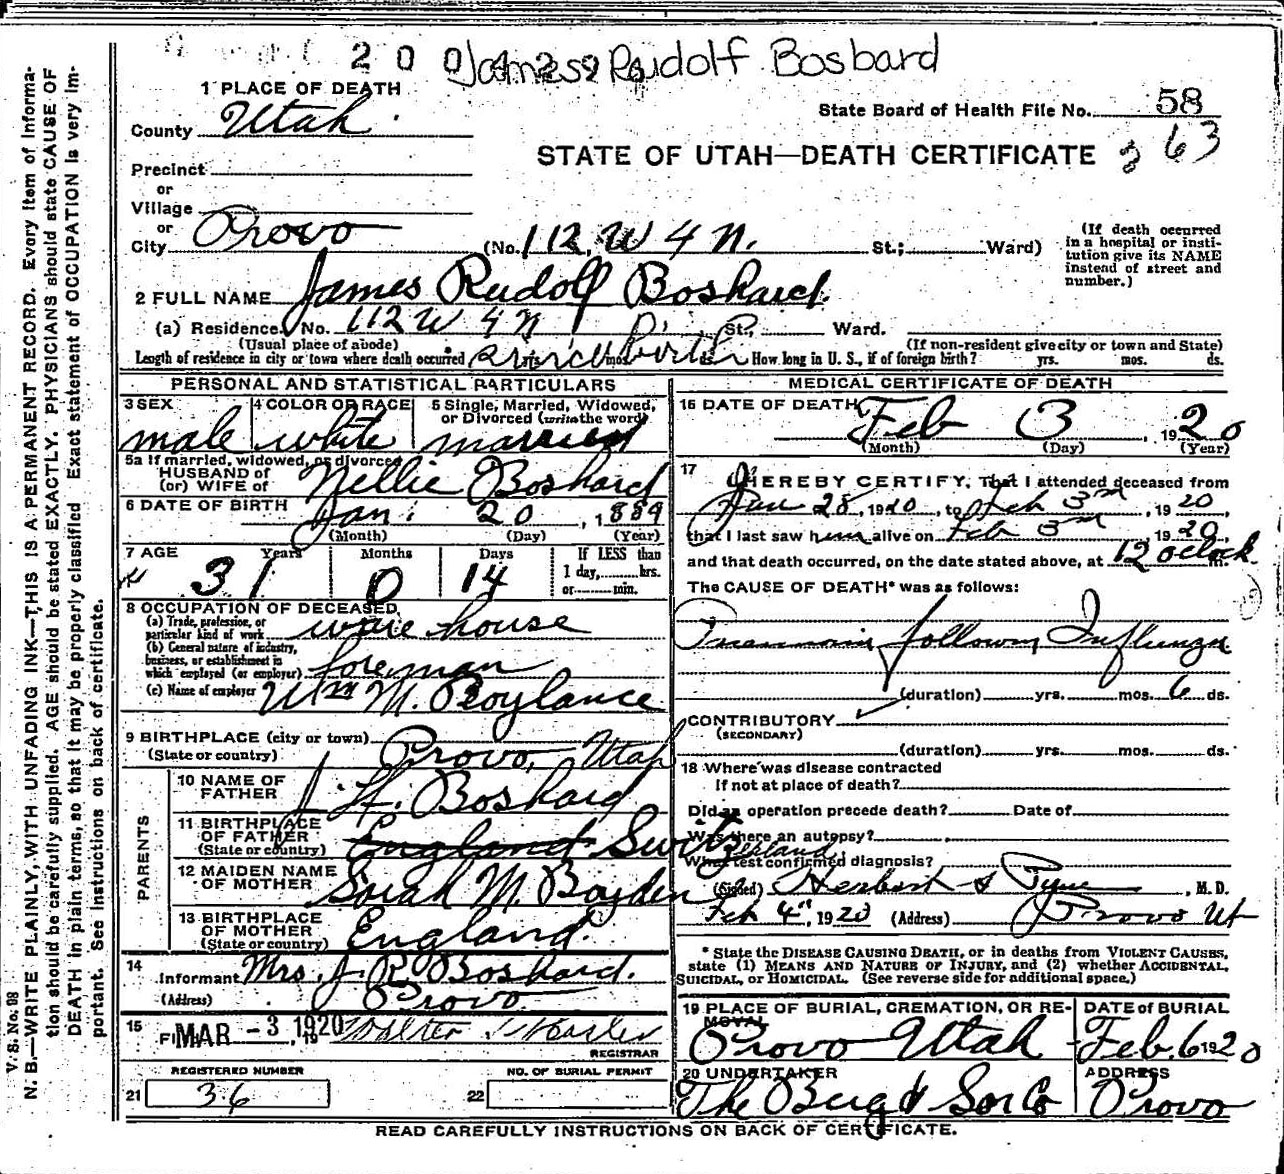 2 0 0 4 2 9 James Rudolf Bosbard
1 PLACE OF DEATH
State Board of Health File No. 58
County Utah
63
STATE OF UTAH—DEATH CERTIFICATE
Precinct
or
Village
or
City Provo (No. 112 W 4 N. St.; Ward)
(If death occurred in a hospital or insti-
tution give its NAME
instead of street and
number.)
2 FULL NAME James Rudolf Boshard
(a) Residence. No. 112 W 4 N St., Ward.
(Usual place of abode) (If non-resident give city or town and State)
Length of residence in city or town where death occurred since birth yrs. mos. ds. How long in U. S., if of foreign birth? yrs. mos. ds.
PERSONAL AND STATISTICAL PARTICULARS
3 SEX 4 COLOR OR RACE 5 Single, Married, Widowed,
or Divorced (write the word)
male white married
5a If married, widowed, or divorced
HUSBAND of
(or) WIFE of Nellie Boshard
6 DATE OF BIRTH Jan. 20, 1889
(Month) (Day) (Year)
7 AGE Years Months Days If LESS than
1 day, hrs.
or min.
31 0 14
8 OCCUPATION OF DECEASED
(a) Trade, profession, or
particular kind of work ware house
(b) General nature of industry,
business, or establishment in
which employed (or employer) foreman
(c) Name of employer Wm M. Roylance
9 BIRTHPLACE (city or town)
(State or country) Provo, Utah
PARENTS
10 NAME OF
FATHER J. H. Boshard
11 BIRTHPLACE
OF FATHER
(State or country) England Switzerland
12 MAIDEN NAME
OF MOTHER Sarah M. Boyden
13 BIRTHPLACE
OF MOTHER
(State or country) England.
14
Informant Mrs. J. R. Boshard.
(Address) Provo
15
MAR - 3 1920, 19
REGISTRAR
REGISTERED NUMBER NO. OF BURIAL PERMIT
21 36 22
MEDICAL CERTIFICATE OF DEATH
16 DATE OF DEATH Feb 3, 1920
(Month) (Day) (Year)
17
I HEREBY CERTIFY, That I attended deceased from
Jan 28, 1920, to Feb 3rd, 1920
that I last saw him alive on Feb 3rd, 1920,
and that death occurred, on the date stated above, at 12 oclock m.
The CAUSE OF DEATH* was as follows:
Pneumonia following Influenza
(duration) yrs. mos. 6 ds.
CONTRIBUTORY
(SECONDARY)
(duration) yrs. mos. ds.
18 Where was disease contracted
If not at place of death?
Did an operation precede death? Date of
Was there an autopsy?
What test confirmed diagnosis?
(Signed) Herbert S Pyne, M. D.
Feb 4th, 1920 (Address) Provo Ut
* State the DISEASE CAUSING DEATH, or in deaths from VIOLENT CAUSES,
state (1) MEANS AND NATURE OF INJURY, and (2) whether ACCIDENTAL,
SUICIDAL, or HOMICIDAL. (See reverse side for additional space.)
19 PLACE OF BURIAL, CREMATION, OR RE-
MOVAL DATE of BURIAL
Provo Utah Feb. 6 1920
20 UNDERTAKER ADDRESS
The Berg & Son Co Provo
READ CAREFULLY INSTRUCTIONS ON BACK OF CERTIFICATE.
V. S. No. 88
N. B.—WRITE PLAINLY, WITH UNFADING INK—THIS IS A PERMANENT RECORD. Every item of informa-
tion should be carefully supplied. AGE should be stated EXACTLY. PHYSICIANS should state CAUSE OF
DEATH in plain terms, so that it may be properly classified. Exact statement of OCCUPATION is very im-
portant. See instructions on back of certificate.